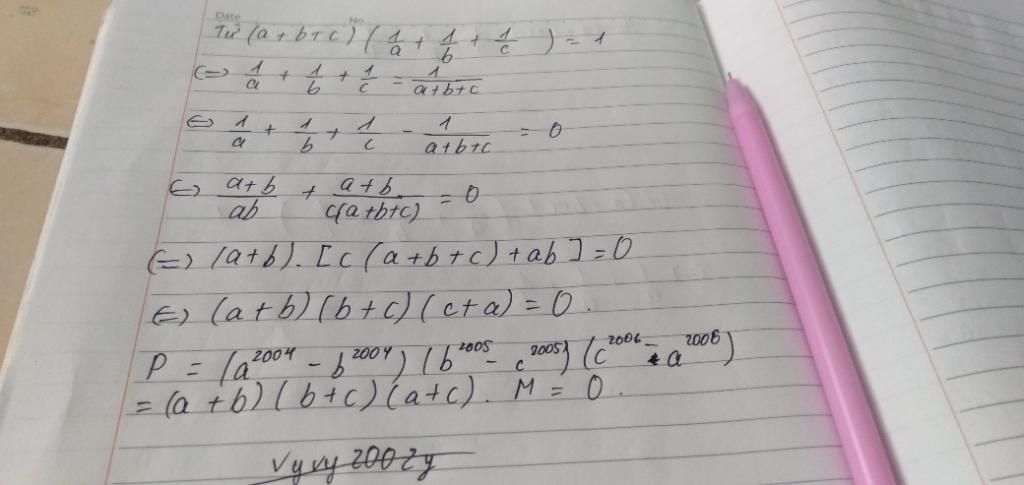 Date No
Từ (a + b + c) ( 1/a + 1/b + 1/c ) = 1
<=> 1/a + 1/b + 1/c = 1/(a+b+c)
<=> 1/a + 1/b + 1/c - 1/(a+b+c) = 0
<=> (a+b)/(ab) + (a+b)/(c(a+b+c)) = 0
<=> (a+b).[c(a+b+c)+ab] = 0
<=> (a+b)(b+c)(c+a) = 0.
P = (a^2004 - b^2004)(b^2005 - c^2005)(c^2006 - a^2006)
= (a+b)(b+c)(a+c). M = 0.